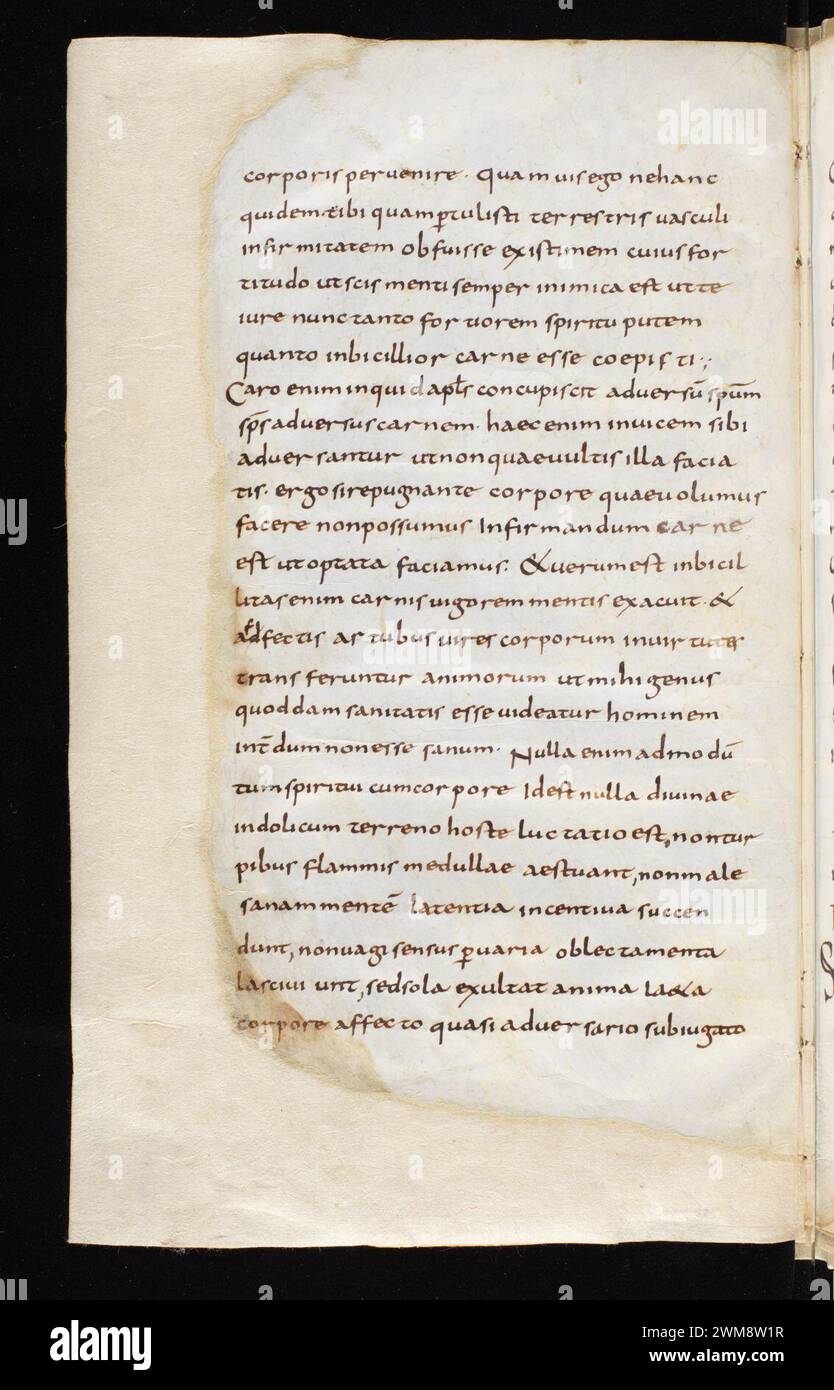 corporis pervenire · Quamvis ego ne hanc
quidem tibi quam ptulisti terrestris vasculi
infirmitatem obfuisse existimem cuius for
titudo ut scis menti semper inimica est ut te
iure nunc tanto fortiorem spiritu putem
quanto inbicillior carne esse coepisti :,
Caro enim inquid aptls concupiscit adversū spūm
sps adversus carnem · haec enim invicem sibi
adversantur ut non quae vultis illa facia
tis · ergo si repugnante corpore quae volumus
facere non possumus Infirmandum carne
est ut optata faciamus · & verum est inbicil
litas enim carnis vigorem mentis exacuit · &
adfectis artubus vires corporum in virtutes
transferuntur animorum ut mihi genus
quoddam sanitatis esse videatur hominem
int̄dum non esse sanum · Nulla enim admodū
tum spiritui cum corpore Id est nulla divinae
indoli cum terreno hoste luctatio est, non tur
pibus flammis medullae aestuant, non male
sanam mentē latentia incentiva succen
dunt, non vagi sensus p varia oblectamenta
lasciviunt, sed sola exultat anima la&a
corpore affecto quasi adversario subiugato
alamy
Image ID: 2WM8W1R
www.alamy.com